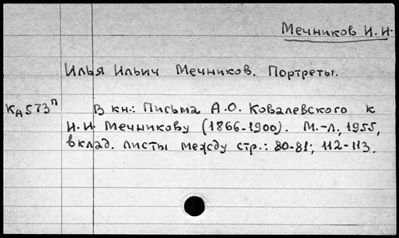 Мечников И.И.
Илья Ильич Мечников. Портреты.
КА573п В кн.: Письма А.О. Ковалевского к
И.И. Мечникову (1866-1900). М.-Л., 1955,
вклад. листы между стр.: 80-81; 112-113.